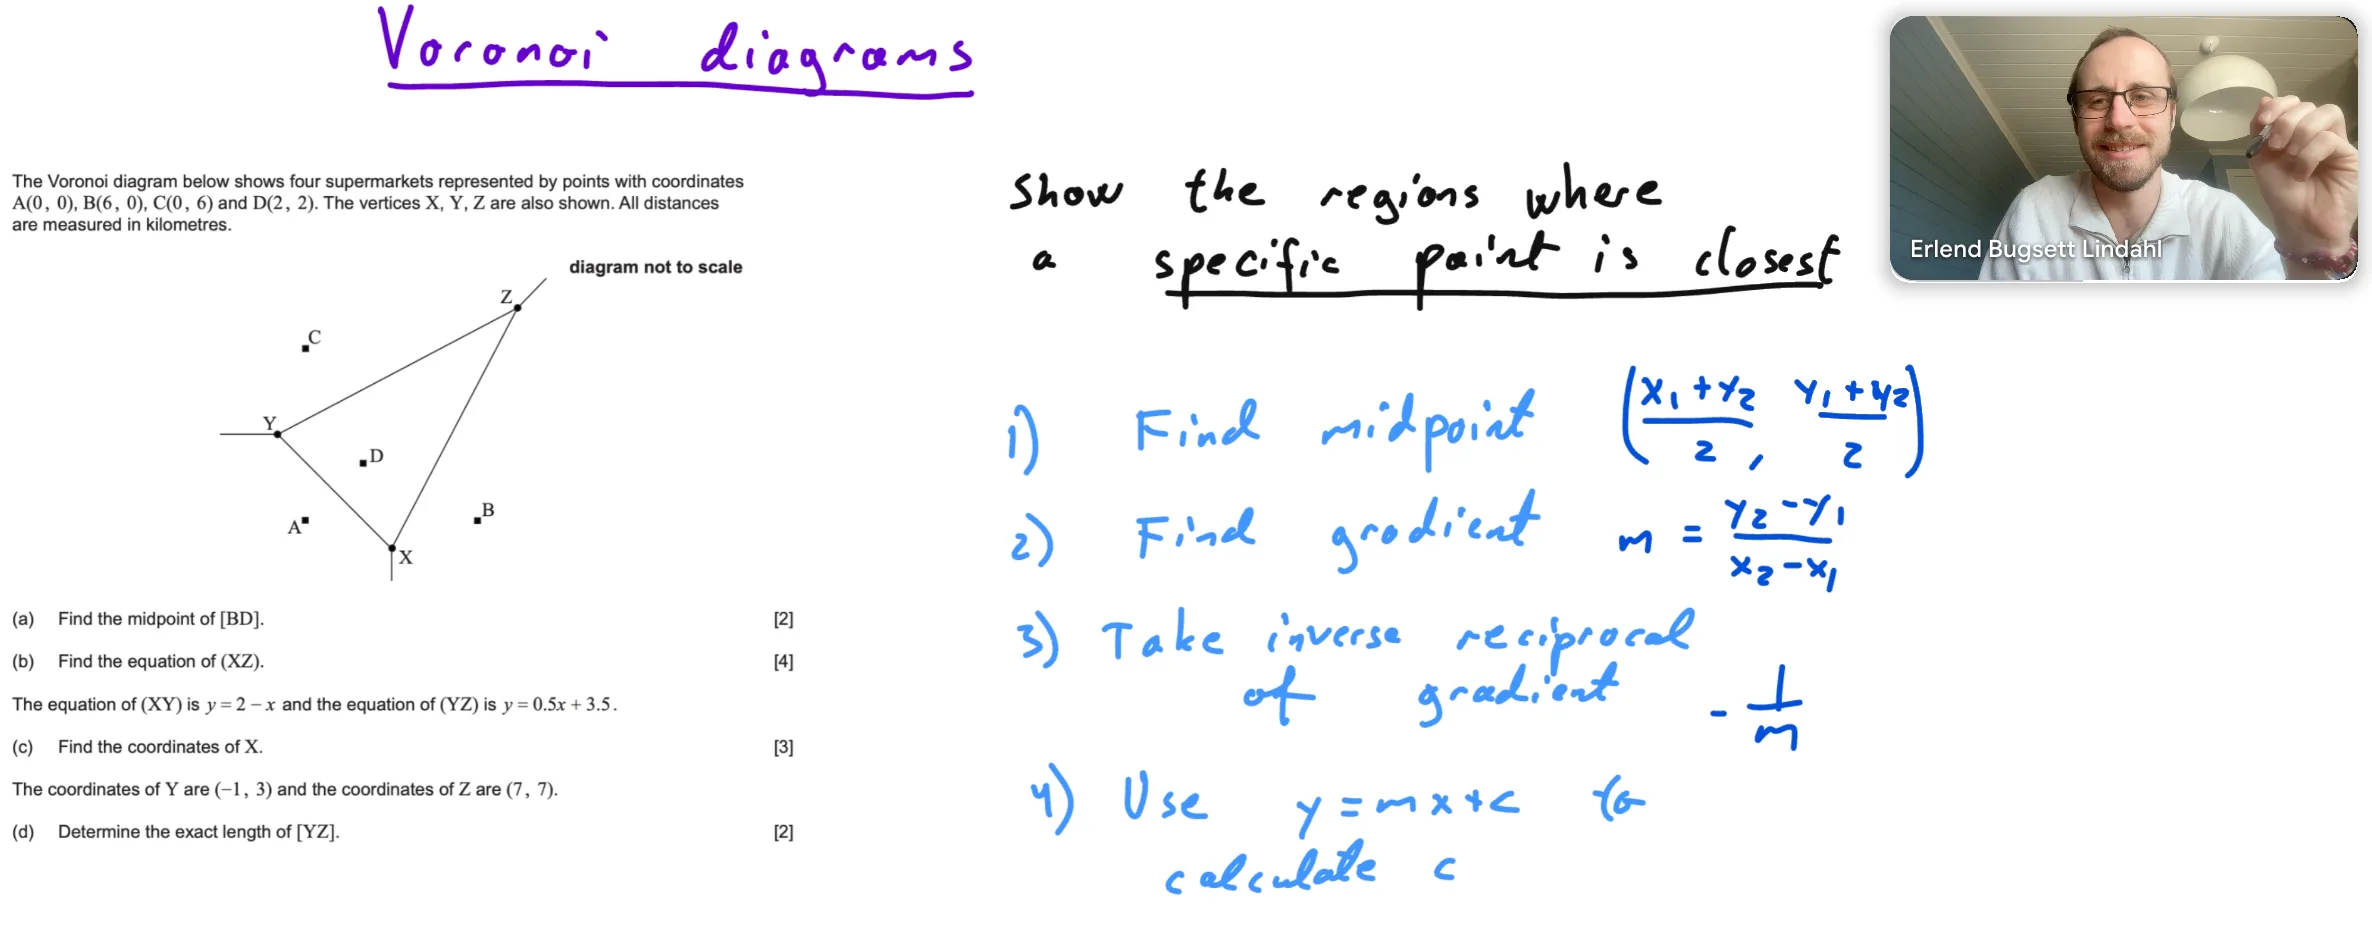 Voronoi diagrams
The Voronoi diagram below shows four supermarkets represented by points with coordinates
A(0, 0), B(6, 0), C(0, 6) and D(2, 2). The vertices X, Y, Z are also shown. All distances
are measured in kilometres.
diagram not to scale
Z
C
Y
D
B
A
X
(a) Find the midpoint of [BD]. [2]
(b) Find the equation of (XZ). [4]
The equation of (XY) is y = 2 − x and the equation of (YZ) is y = 0.5x + 3.5.
(c) Find the coordinates of X. [3]
The coordinates of Y are (−1, 3) and the coordinates of Z are (7, 7).
(d) Determine the exact length of [YZ]. [2]
Show the regions where
a specific point is closest
1) Find midpoint (x₁ + x₂ / 2, y₁ + y₂ / 2)
2) Find gradient m = y₂ − y₁ / x₂ − x₁
3) Take inverse reciprocal
of gradient − 1/m
4) Use y = mx + c to
calculate c
Erlend Bugsett Lindahl